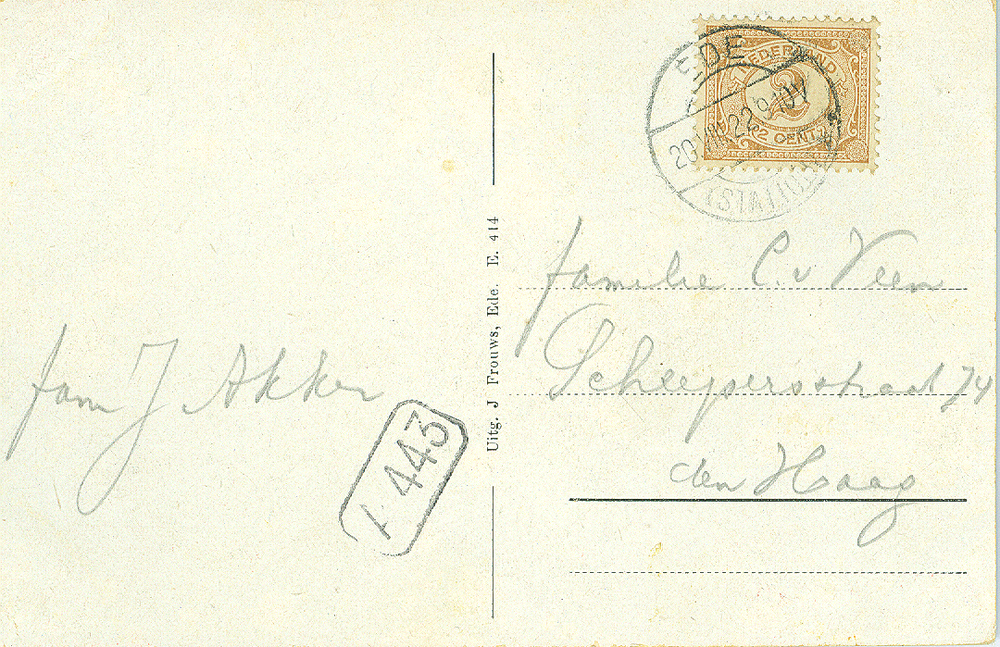 fam J Akker
A 443
Uitg. J Frouws, Ede. E. 414
EDE
20.VIII.22.9-10V
(STATION)
NEDERLAND
2
2 CENT
familie C. v Veen
Scheepersstraat 74
den Haag